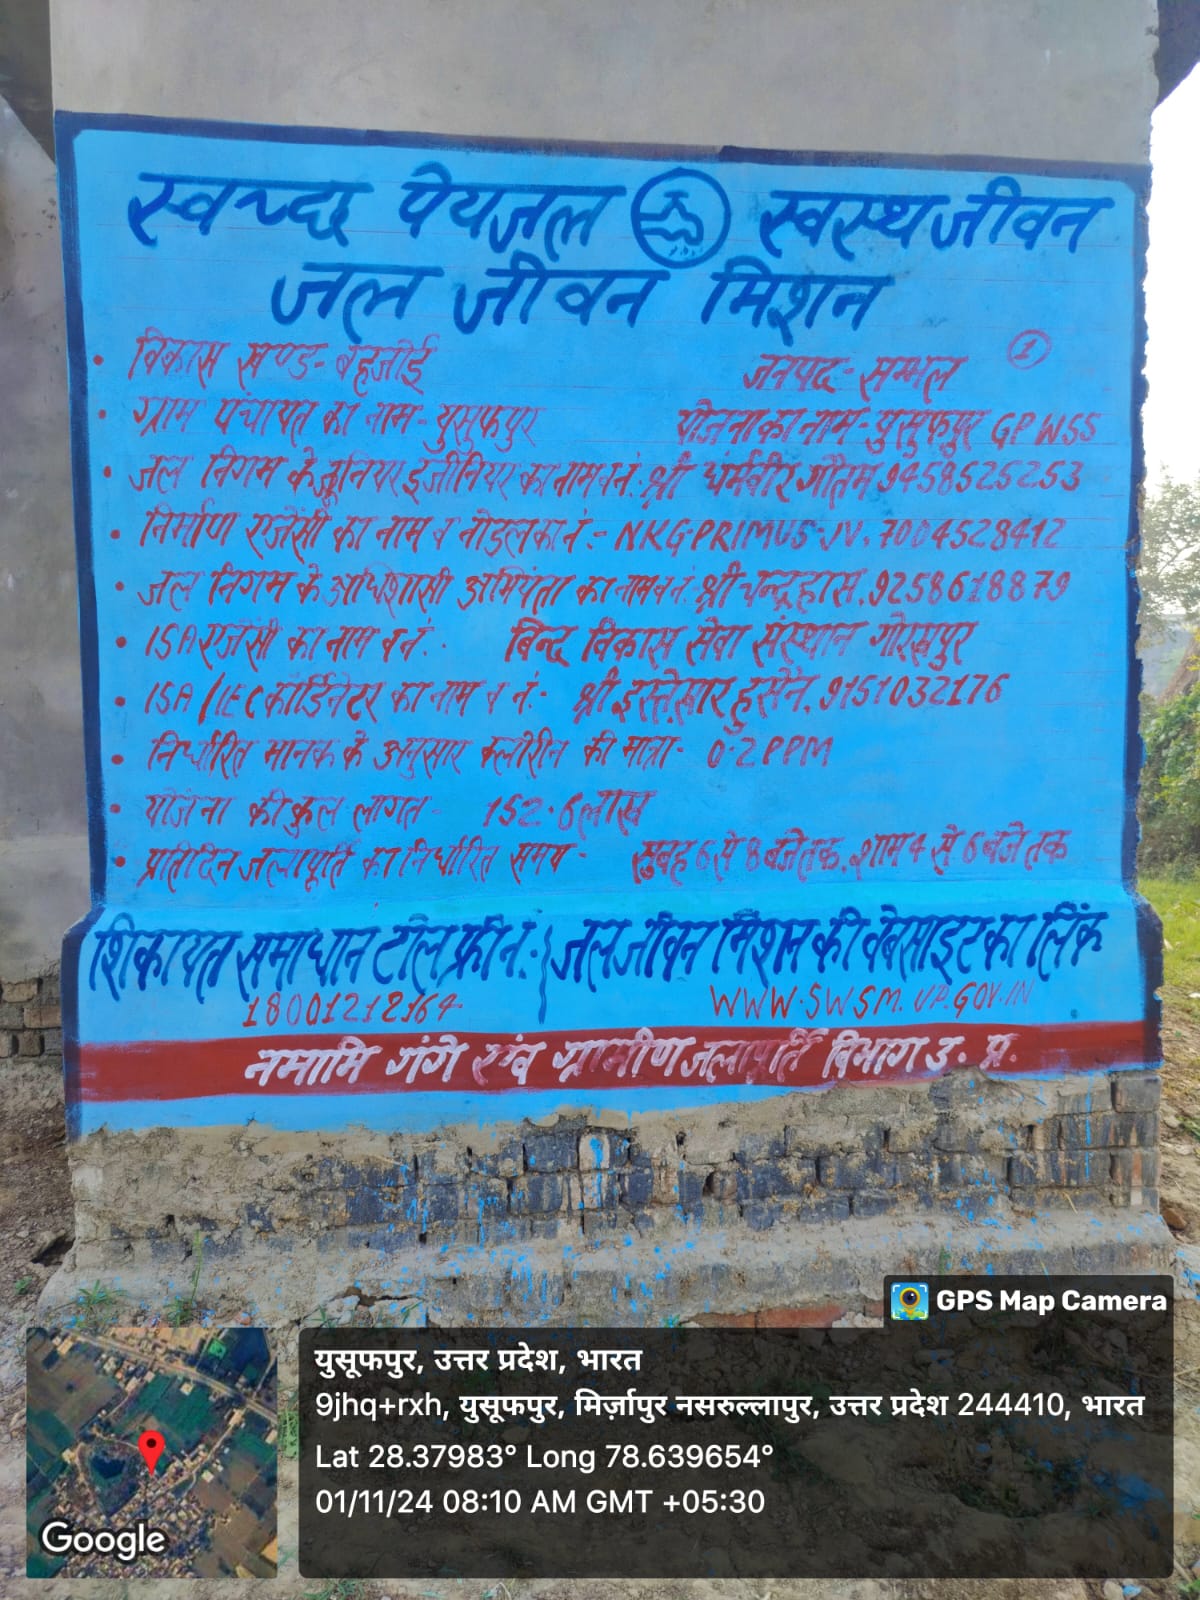 स्वच्छ पेयजल स्वस्थ जीवन
जल जीवन मिशन
1
• विकास खण्ड - बहजोई जनपद - सम्भल
• ग्राम पंचायत का नाम - युसुफपुर योजना का नाम - युसुफपुर GPWSS
• जल निगम के जूनियर इंजीनियर का नाम व नं: श्री धर्मवीर गौतम 9458525253
• निर्माण एजेंसी का नाम व नोडल का नं:- NKG-PRIMUS-JV, 7004528412
• जल निगम के अधिशासी अभियंता का नाम व नं: श्री चन्द्रहास. 9258618879
• ISA एजेंसी का नाम व नं: बिन्द विकास सेवा संस्थान गोरखपुर
• ISA/IEC कार्डिनेटर का नाम व नं:- श्री इस्तेखार हुसेन. 9151032176
• निर्धारित मानक के अनुसार क्लोरीन की मात्रा- 0.2PPM
• योजना की कुल लागत- 152.6 लाख
• प्रतिदिन जलापूर्ति का निर्धारित समय- सुबह 6 से 8 बजे तक. शाम 4 से 6 बजे तक
शिकायत समाधान टोल फ्री नं. जल जीवन मिशन की वेबसाइट का लिंक
18001212164 WWW.SWSM.UP.GOV.IN
नमामि गंगे एंव ग्रामीण जलापूर्ति विभाग उ. प्र.
GPS Map Camera
युसूफपुर, उत्तर प्रदेश, भारत
9jhq+rxh, युसूफपुर, मिर्ज़ापुर नसरुल्लापुर, उत्तर प्रदेश 244410, भारत
Lat 28.37983° Long 78.639654°
01/11/24 08:10 AM GMT +05:30
Google